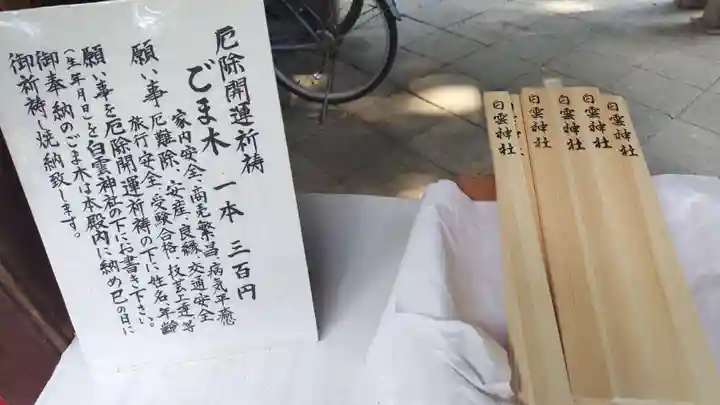 厄除開運祈祷
ごま木 一本 三百円
家内安全、商売繁昌、病気平癒
願い事 厄難除、安産、良縁、交通安全
旅行安全、受験合格、技芸上達、等
願い事を厄除開運祈祷の下に、姓名、年齢
(生年月日)を白雲神社の下にお書き下さい。
御奉納のごま木は本殿内に納め巳の日に
御祈祷、焼納致します。
白雲神社
白雲神社
白雲神社
白雲神社